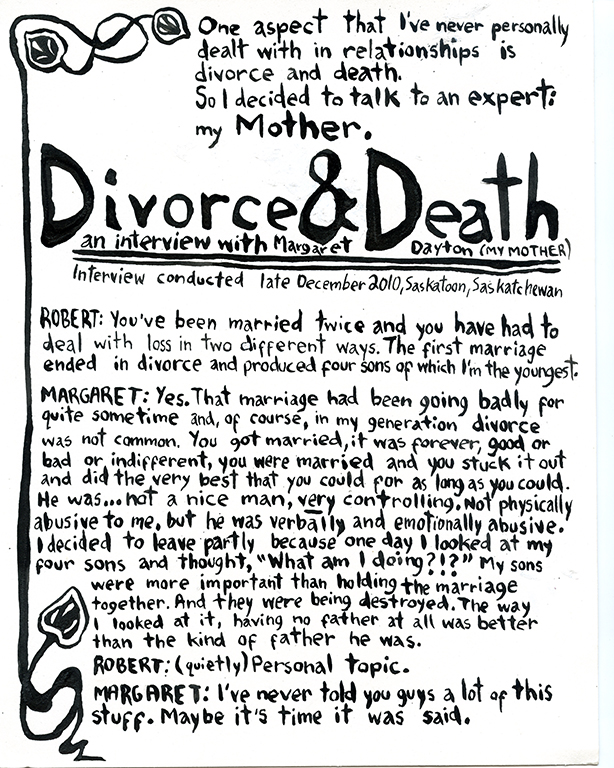 One aspect that I've never personally
dealt with in relationships is
divorce and death.
So I decided to talk to an expert:
my Mother.
Divorce & Death
an interview with Margaret Dayton (MY MOTHER)
Interview conducted late December 2010, Saskatoon, Saskatchewan
ROBERT: You've been married twice and you have had to
deal with loss in two different ways. The first marriage
ended in divorce and produced four sons of which I'm the youngest.
MARGARET: Yes. That marriage had been going badly for
quite sometime and, of course, in my generation divorce
was not common. You got married, it was forever, good or
bad or indifferent, you were married and you stuck it out
and did the very best that you could for as long as you could.
He was... not a nice man, very controlling. Not physically
abusive to me, but he was verbally and emotionally abusive.
I decided to leave partly because one day I looked at my
four sons and thought, "What am I doing?!?" My sons
were more important than holding the marriage
together. And they were being destroyed. The way
I looked at it, having no father at all was better
than the kind of father he was.
ROBERT: (quietly) Personal topic.
MARGARET: I've never told you guys a lot of this
stuff. Maybe it's time it was said.